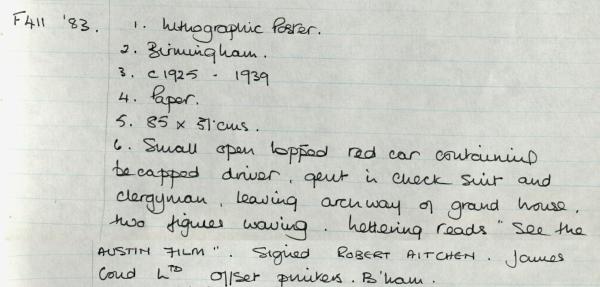 F411 '83. 1. Lithographic Poster.
2. Birmingham.
3. c1925 - 1939
4. Paper.
5. 85 x 31 cms.
6. Small open topped red car containing
be capped driver, gent in check suit and
clergyman, leaving archway of grand house.
two figures waving. Lettering reads "See the
AUSTIN FILM". Signed ROBERT AITCHEN. James
Cond LTD offset printers. B'ham.